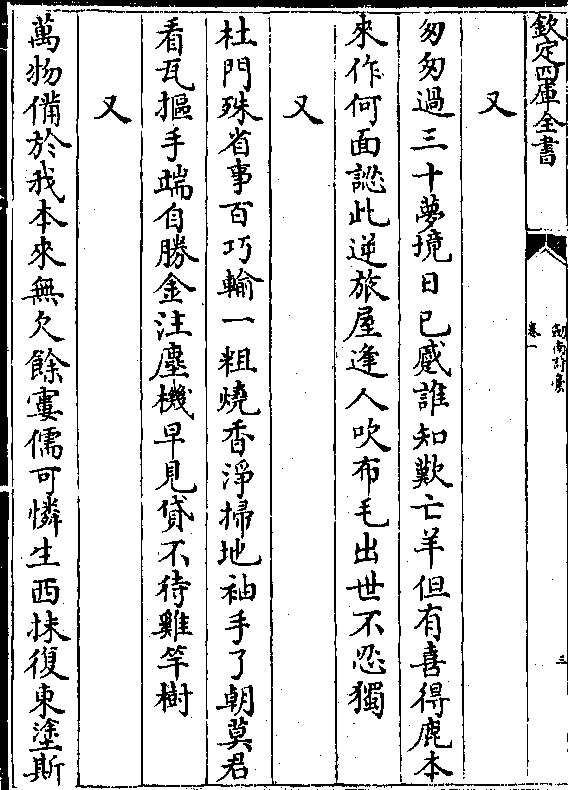 欽定四庫全書
劍南詩稾
卷一
三
又
匆匆過三十夢境日已蹙誰知歎亡羊但有喜得鹿本
來作何面認此逆旅屋逢人吹布毛出世不忍獨
又
杜門殊省事百巧輸一粗燒香淨掃地袖手了朝莫君
看瓦摳手端自勝金注塵機早見貸不待雞竿樹
又
萬物備於我本來無欠餘窶儒可憐生西抹復東塗斯